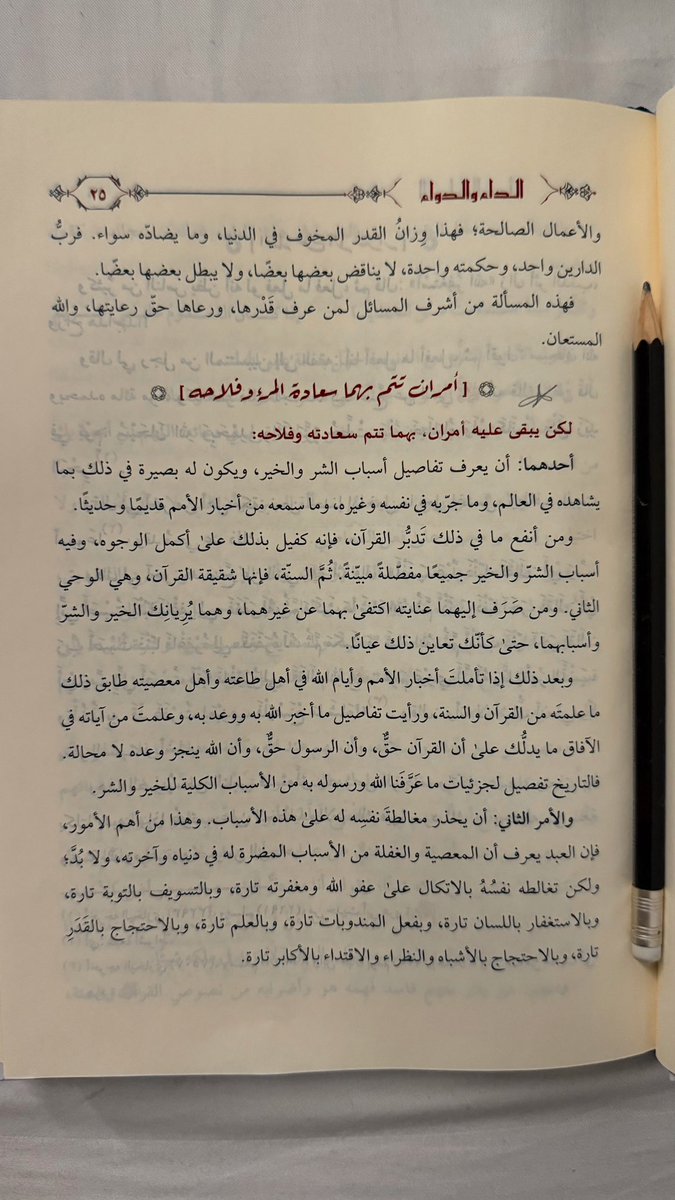 الداء والدواء ٢٥
والأعمال الصالحة؛ فهذا وِزانُ القدر المخوف في الدنيا، وما يضادّه سواء. فربُّ
الدارين واحد، وحكمته واحدة، لا يناقض بعضها بعضًا، ولا يبطل بعضها بعضًا.
فهذه المسألة من أشرف المسائل لمن عرف قَدْرها، ورعاها حقّ رعايتها، والله
المستعان.
[أمران تتم بهما سعادة المرء وفلاحه]
لكن يبقى عليه أمران، بهما تتم سعادته وفلاحه:
أحدهما: أن يعرف تفاصيل أسباب الشر والخير، ويكون له بصيرة في ذلك بما
يشاهده في العالم، وما جرّبه في نفسه وغيره، وما سمعه من أخبار الأمم قديمًا وحديثًا.
ومن أنفع ما في ذلك تَدبُّر القرآن، فإنه كفيل بذلك علىٰ أكمل الوجوه، وفيه
أسباب الشرّ والخير جميعًا مفصّلةً مبيّنةً. ثُمَّ السنّة، فإنها شقيقة القرآن، وهي الوحي
الثاني. ومن صَرَف إليهما عنايته اكتفىٰ بهما عن غيرهما، وهما يُرِيانِك الخير والشرّ
وأسبابهما، حتىٰ كأنّك تعاين ذلك عيانًا.
وبعد ذلك إذا تأملتَ أخبار الأمم وأيام الله في أهل طاعته وأهل معصيته طابق ذلك
ما علمتَه من القرآن والسنة، ورأيت تفاصيل ما أخبر الله به ووعد به، وعلمتَ من آياته في
الآفاق ما يدلُّك علىٰ أن القرآن حقٌّ، وأن الرسول حقٌّ، وأن الله ينجز وعده لا محالة.
فالتاريخ تفصيل لجزئيات ما عَرَّفَنا الله ورسوله به من الأسباب الكلية للخير والشر.
والأمر الثاني: أن يحذر مغالطةَ نفسِه له علىٰ هذه الأسباب. وهذا من أهم الأمور،
فإن العبد يعرف أن المعصية والغفلة من الأسباب المضرة له في دنياه وآخرته، ولا بُدَّ؛
ولكن تغالطه نفسُهُ بالاتكال علىٰ عفو الله ومغفرته تارة، وبالتسويف بالتوبة تارة،
وبالاستغفار باللسان تارة، وبفعل المندوبات تارة، وبالعلم تارة، وبالاحتجاج بالقَدَرِ
تارة، وبالاحتجاج بالأشباه والنظراء والاقتداء بالأكابر تارة.